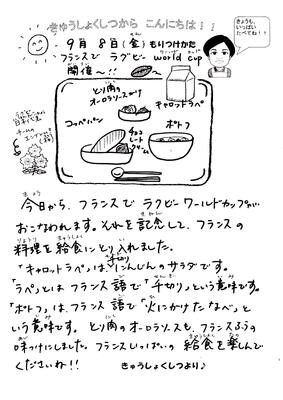 きゅうしょくしつから こんにちは！！
きょうも、
いっぱい
たべてね！！
9月 8日(金) もりつけかた
フランスで ラグビー world cup
開催～！！
とり肉の
オーロラソースがけ
キャロットラペ
コッペパン
チョコ
レート
クリーム
ポトフ
今日から、フランスで ラグビーワールドカップがい
おこなわれます。それを記念して、フランスの
料理を給食にとり入れました。
「キャロットラペ」は、にんじんのサラダです。
「ラペ」とは フランス語で「千切り」という意味です。
「ポトフ」は、フランス語で「火にかけたなべ」と
いう意味です。とり肉のオーロラソースも、フランスふうの
味つけにしました。フランスいっぱいの 給食を楽しんで
くださいね!!
きゅうしょくしつより♪